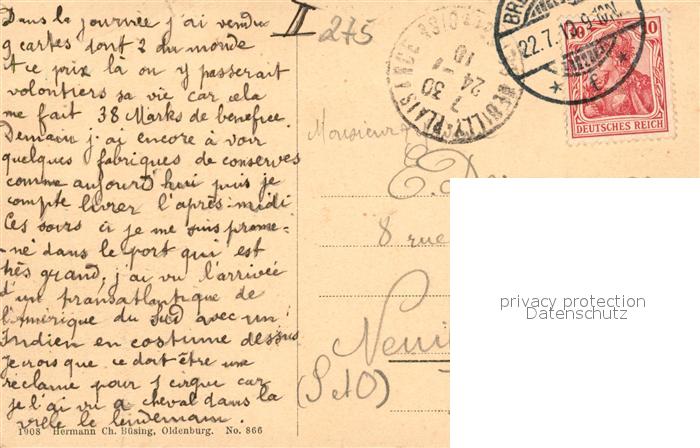 Dans la journée j'ai vendu
9 cartes dont 2 du monde
et ce prix là on y passerait
volontiers sa vie car cela
me fait 38 Marks de benefice
Demain j'ai encore à voir
quelques fabriques de conserves
comme aujourd'hui puis je
compte livrer l'après-midi
Ces soirs ci je me suis prome-
né dans le port qui est
très grand, j'ai vu l'arrivée
d'un transatlantique de
l'amérique du Sud avec un
Indien en costume dessus
Je crois que ce doit être une
réclame pour 1 cirque car
je l'ai vu à cheval dans la
ville le lendemain.
1908 Hermann Ch. Büsing, Oldenburg. No. 866
II
275
7 30
24 -7
10
22.7.10.9-10N.
10 10
DEUTSCHES REICH
Monsieur
E.
8 rue
Neuil
(S et O)
privacy protection
Datenschutz